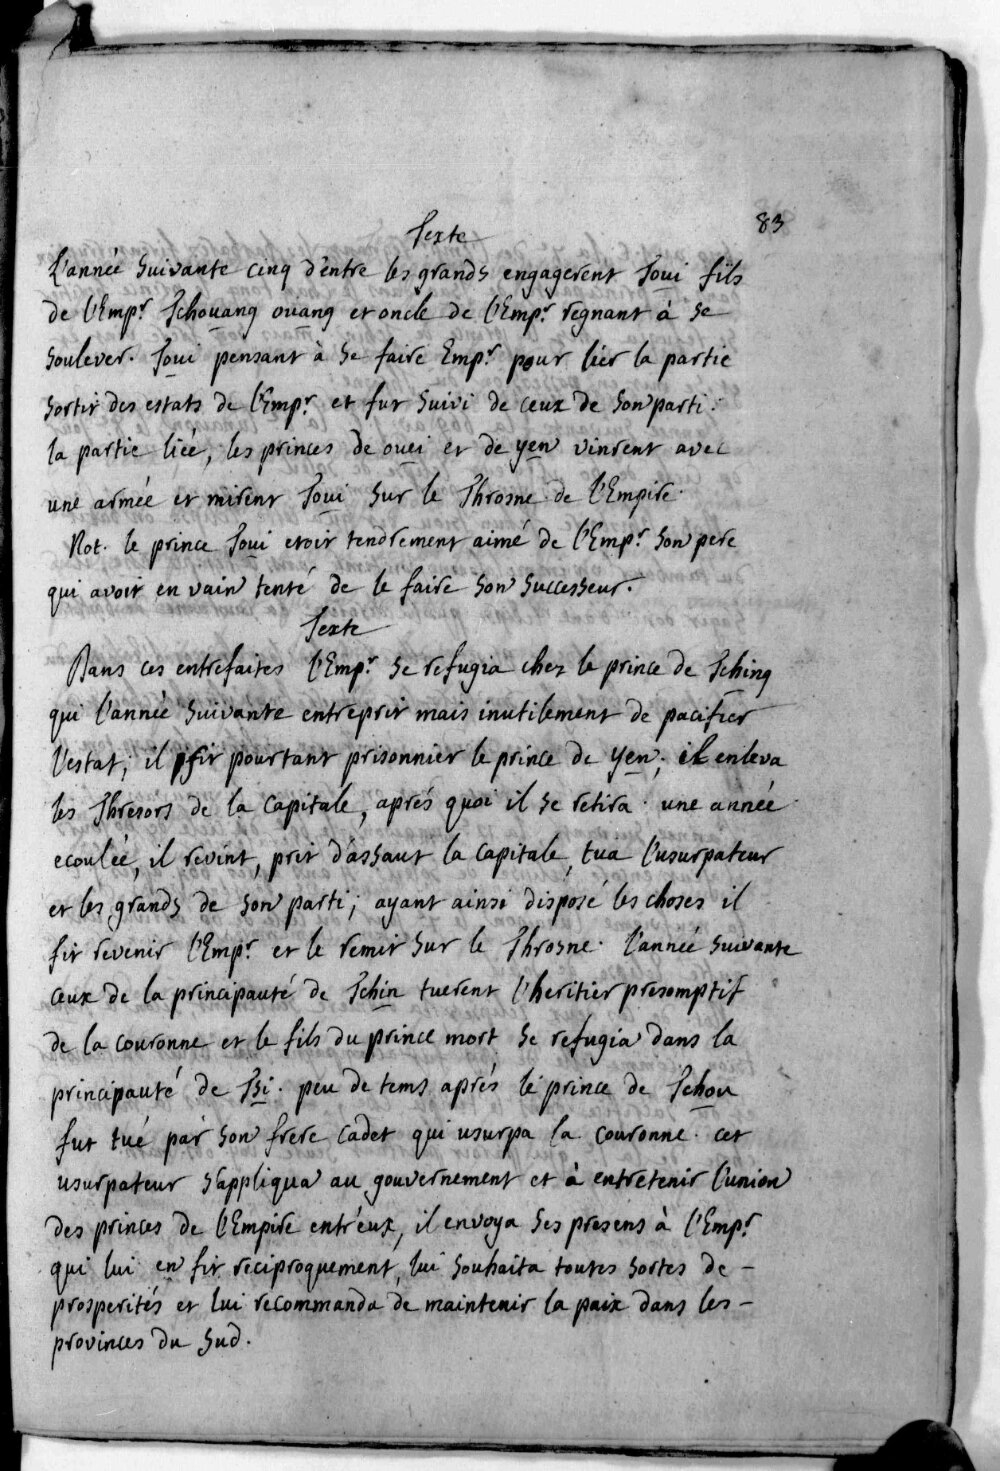 83
Texte
L'année suivante cinq d'entre les grands engagerent Toui fils
de l'Emp.r Tchouang ouang et oncle de l'Emp.r regnant à se
soulever. Toui pensant à se faire Emp.r pour lier la partie
sortit des estats de l'Emp.r et fut suivi de ceux de son parti.
la partie liée, les princes de ouei et de yen vinrent avec
une armée et mirent Toui sur le Throsne de l'Empire.
Not. le prince Toui etoit tendrement aimé de l'Emp.r son pere
qui avoit en vain tenté de le faire son successeur.
Texte
Dans ces entrefaites l'Emp.r se refugia chez le prince de Tching
qui l'année suivante entreprit mais inutilement de pacifier
l'estat; il fit pourtant prisonnier le prince de yen; il enleva
les Thresors de la capitale, aprés quoi il se retira. une année
ecoulée, il revint, prit d'assaut la capitale, tua l'usurpateur
et les grands de son parti; ayant ainsi disposé les choses il
fit revenir l'Emp.r et le remit sur le Throsne. l'année suivante
ceux de la principauté de Tchin tuerent l'heritier presomptif
de la couronne et le fils du prince mort se refugia dans la
principauté de Tsi. peu de tems aprés le prince de Tchou
fut tué par son frere cadet qui usurpa la couronne. cet
usurpateur s'appliqua au gouvernement et à entretenir l'union
des princes de l'Empire entr'eux, il envoya ses presens à l'Emp.r
qui lui en fit reciproquement, lui souhaita toutes sortes de -
prosperités et lui recommanda de maintenir la paix dans les -
provinces du sud.